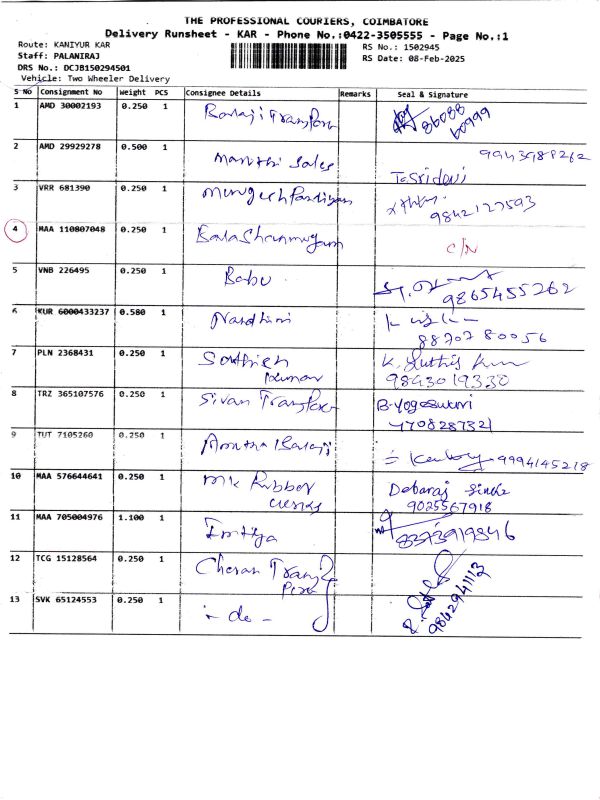 THE PROFESSIONAL COURIERS, COIMBATORE
Delivery Runsheet - KAR - Phone No.:0422-3505555 - Page No.:1
Route: KANIYUR KAR
RS No.: 1502945
Staff: PALANIRAJ
RS Date: 08-Feb-2025
DRS No.: DCJB150294501
Vehicle: Two Wheeler Delivery
S No Consignment No Weight PCS Consignee Details Remarks Seal & Signature
1 AMD 30002193 0.250 1 Balaji Transport 86088 60999
2 AMD 29929278 0.500 1 Maruthi Sales 9943988262
T. Sridevi
3 VRR 681390 0.250 1 Murugesh Pandiyan 9842127593
4 MAA 110807048 0.250 1 Bala Shanmugam C/N
5 VNB 226495 0.250 1 Babu 9865455262
6 KUR 6000433237 0.580 1 Nandhini
88707 80056
7 PLN 2368431 0.250 1 K. Suthis Kum
Kumar 9843019330
8 TRZ 365107576 0.250 1 Sivan Transport B. Yogeswari
4708287321
9 TUT 7105260 0.250 1 Amutha Balaji 9994145218
10 MAA 576644641 0.250 1 MK Rubber Debaraj Singh
9025567918
11 MAA 705004976 1.100 1 Imtiya 8373919846
12 TCG 15128564 0.250 1 Cheran Transport
13 SVK 65124553 0.250 1 - do - 9842941113